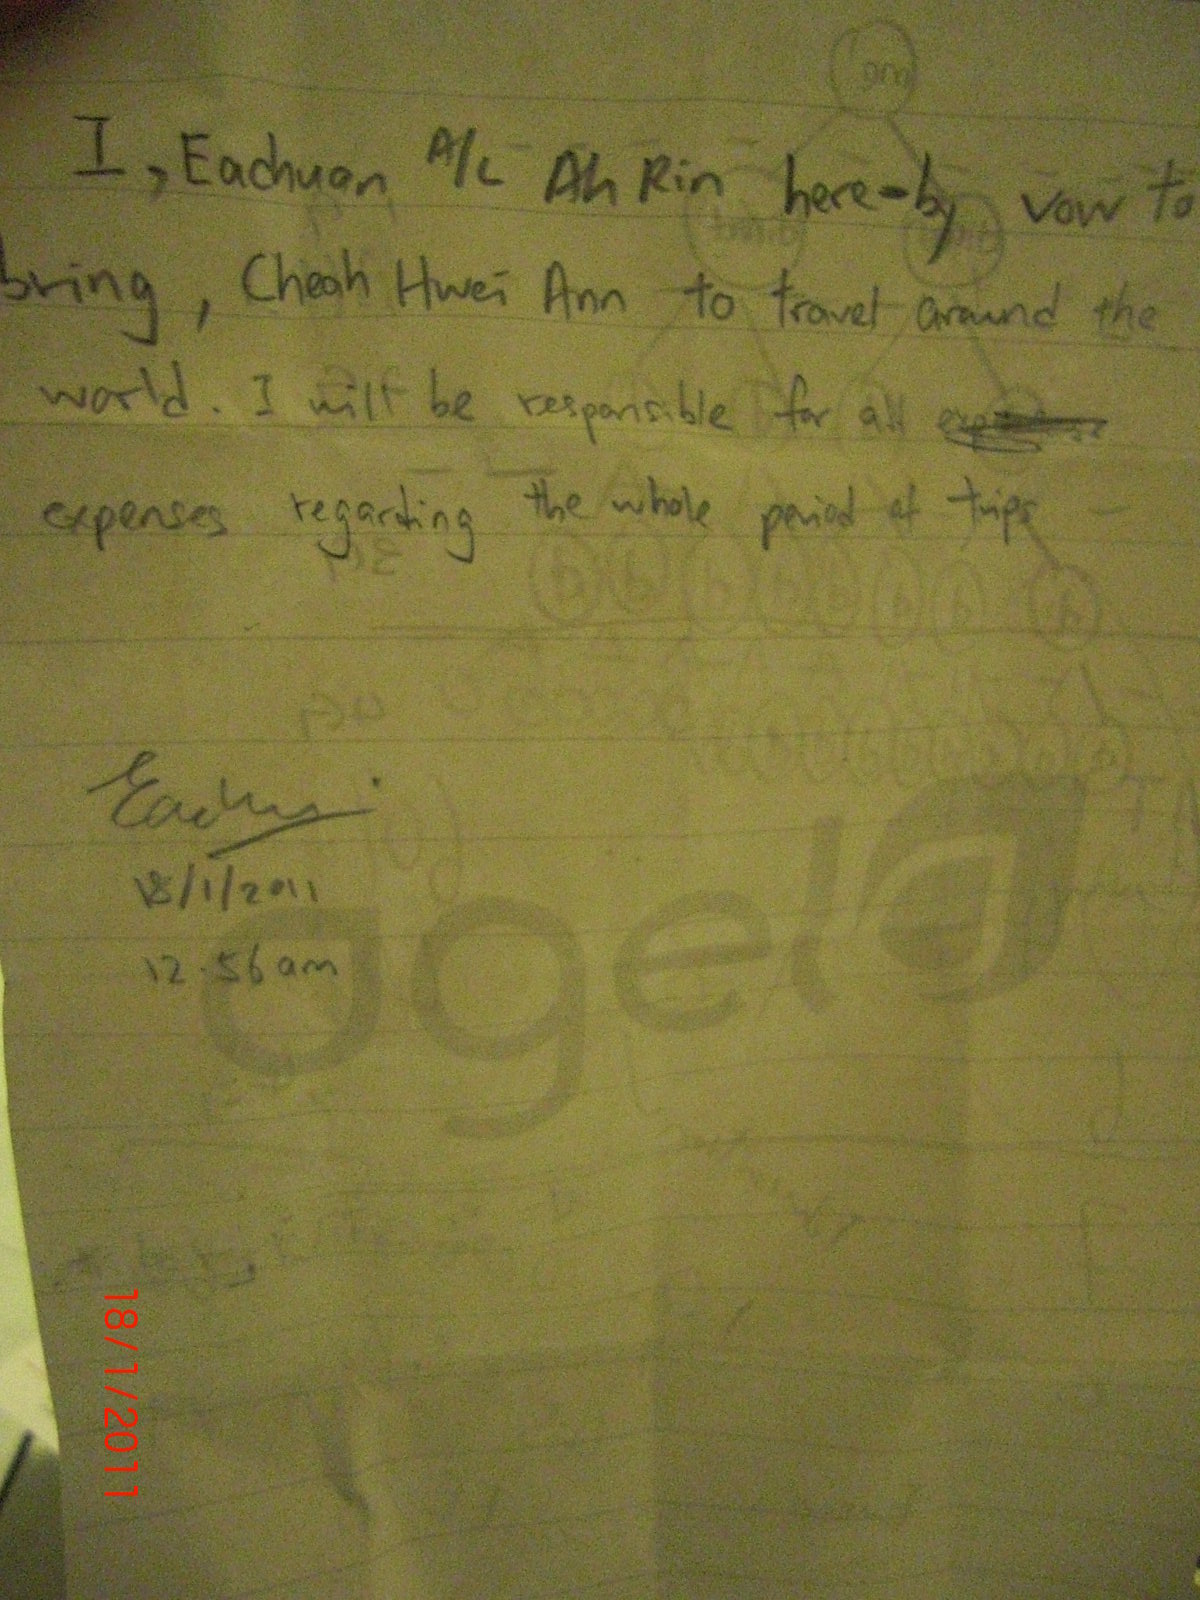 I, Eachuan A/L Ah Rin here-by vow to
bring, Cheah Hwei Ann to travel around the
world. I will be responsible for all
expenses regarding the whole period of trips
Eachuan
18/1/2011
12.56 am
agel
18/1/2011